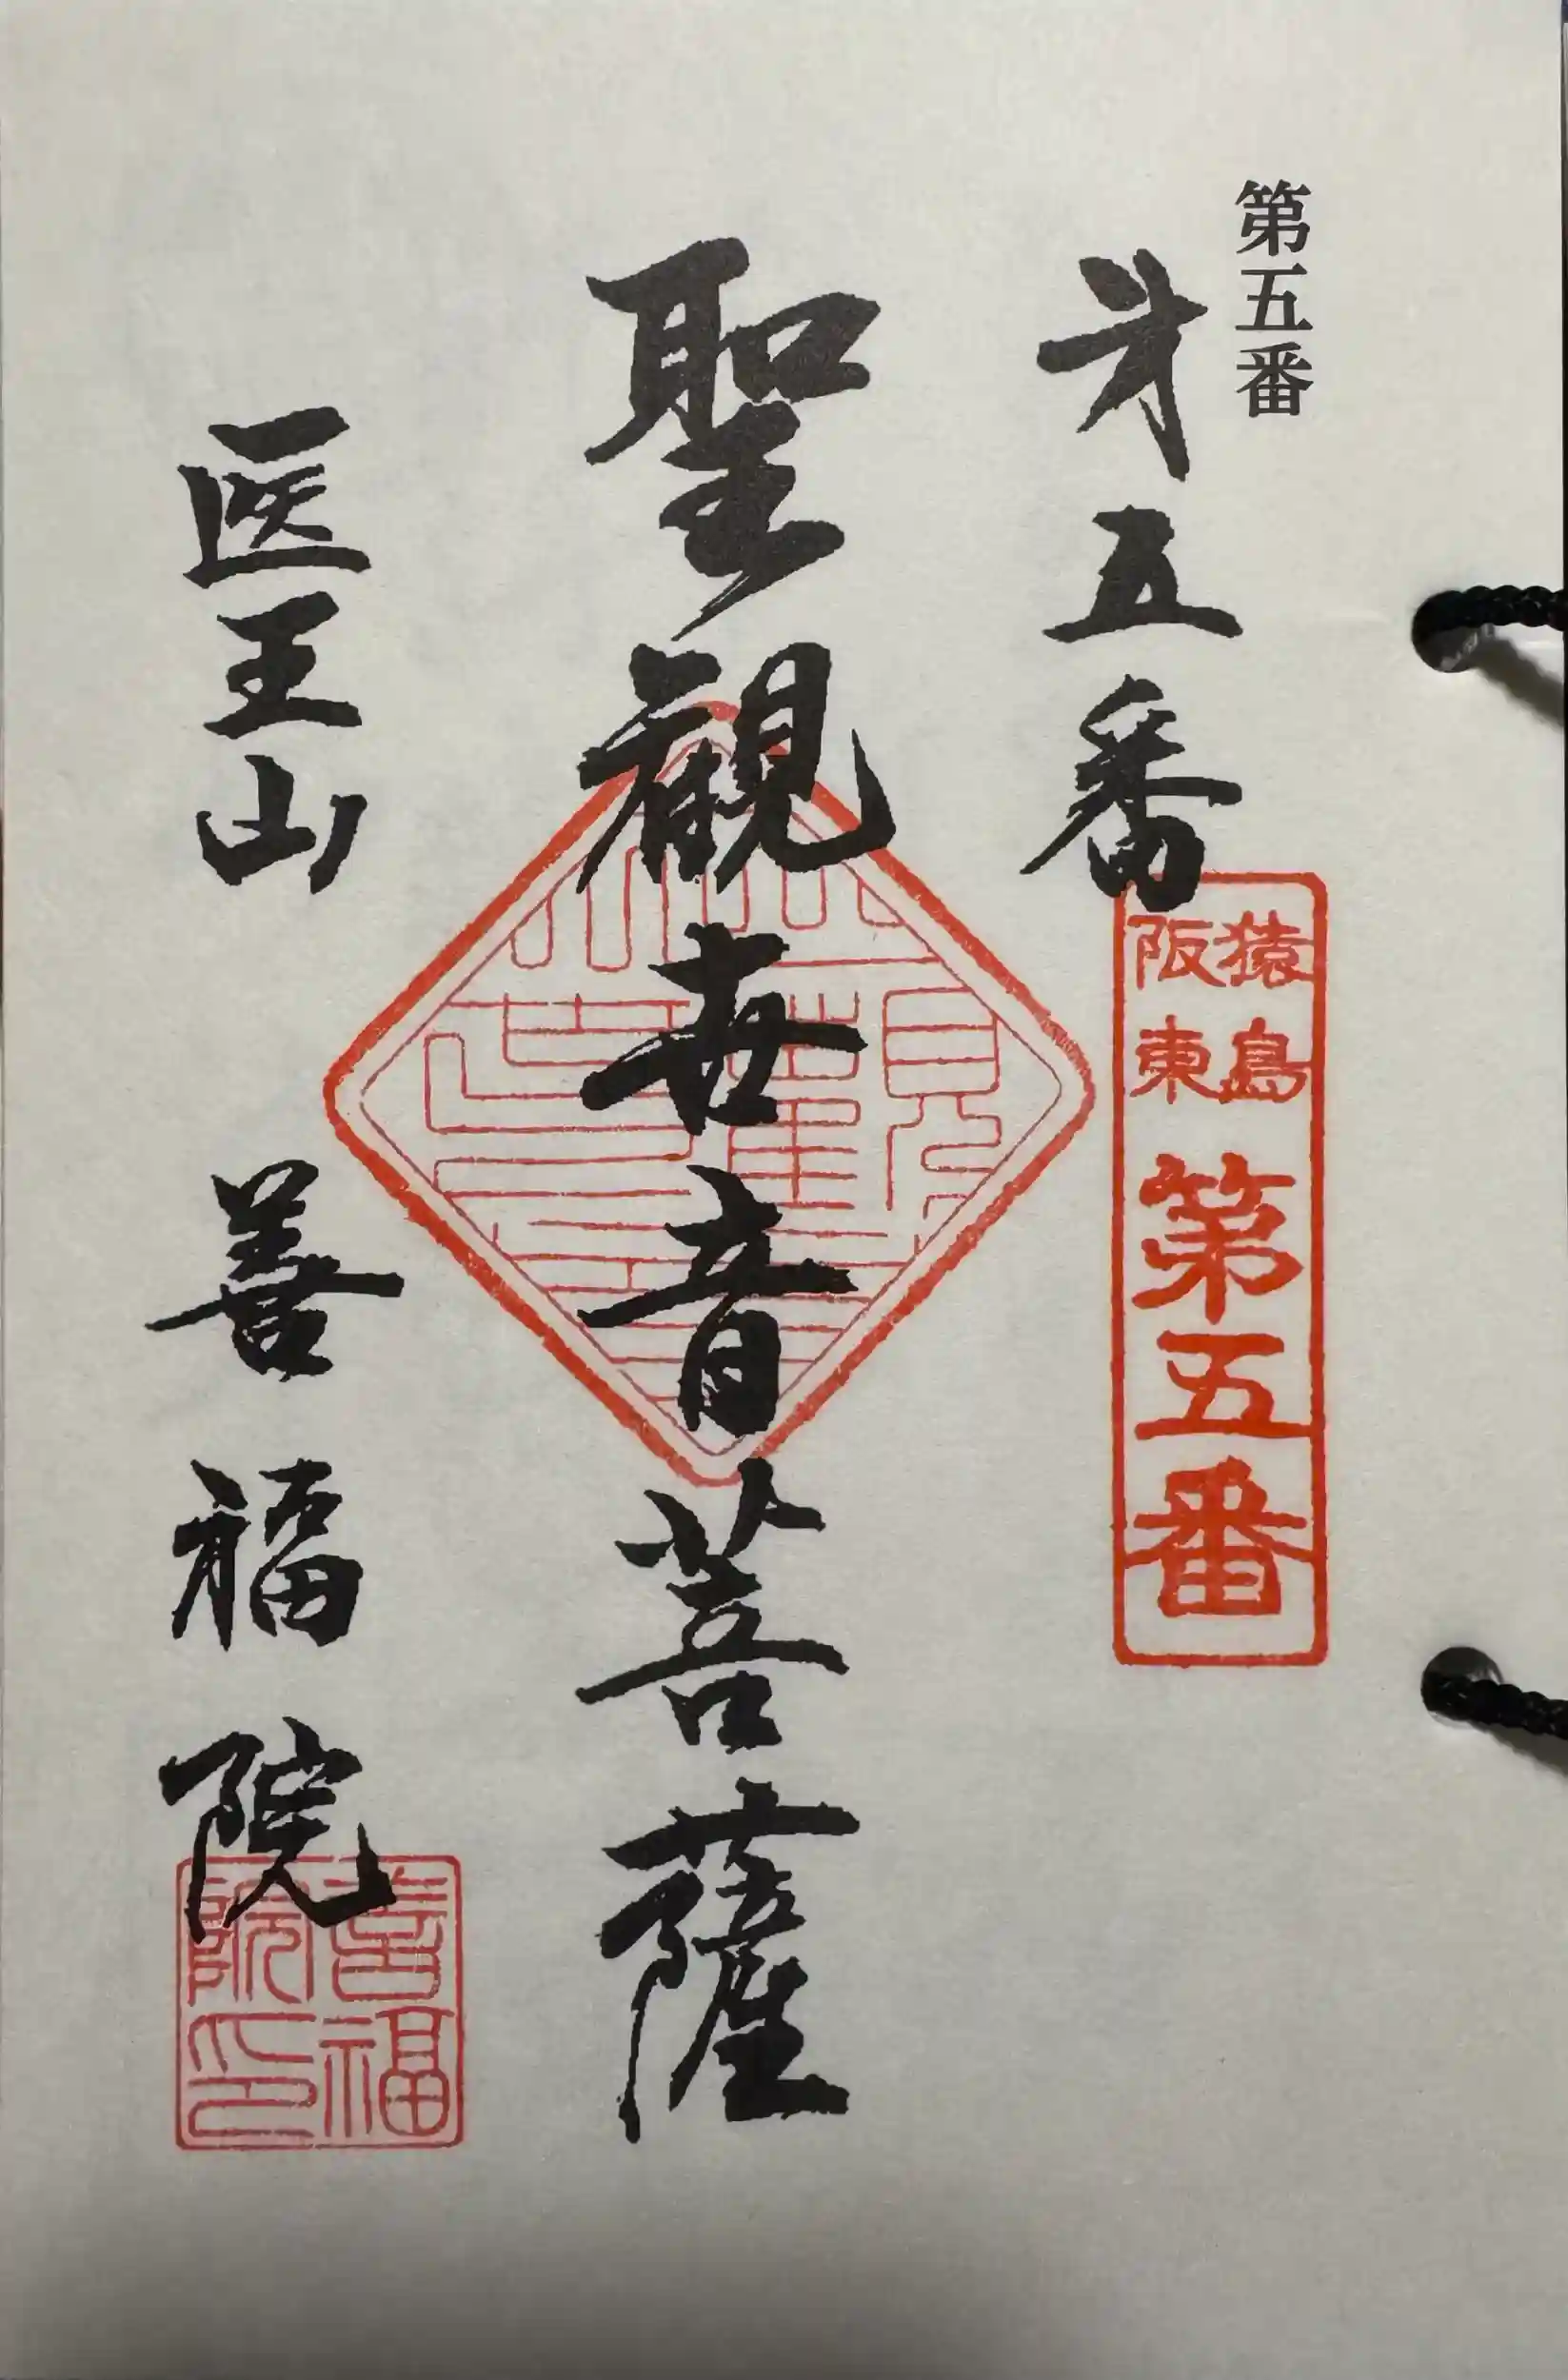 第五番
㐧五番
猿島
阪東
第五番
聖観世音菩薩
医王山 善福院
善福
院印